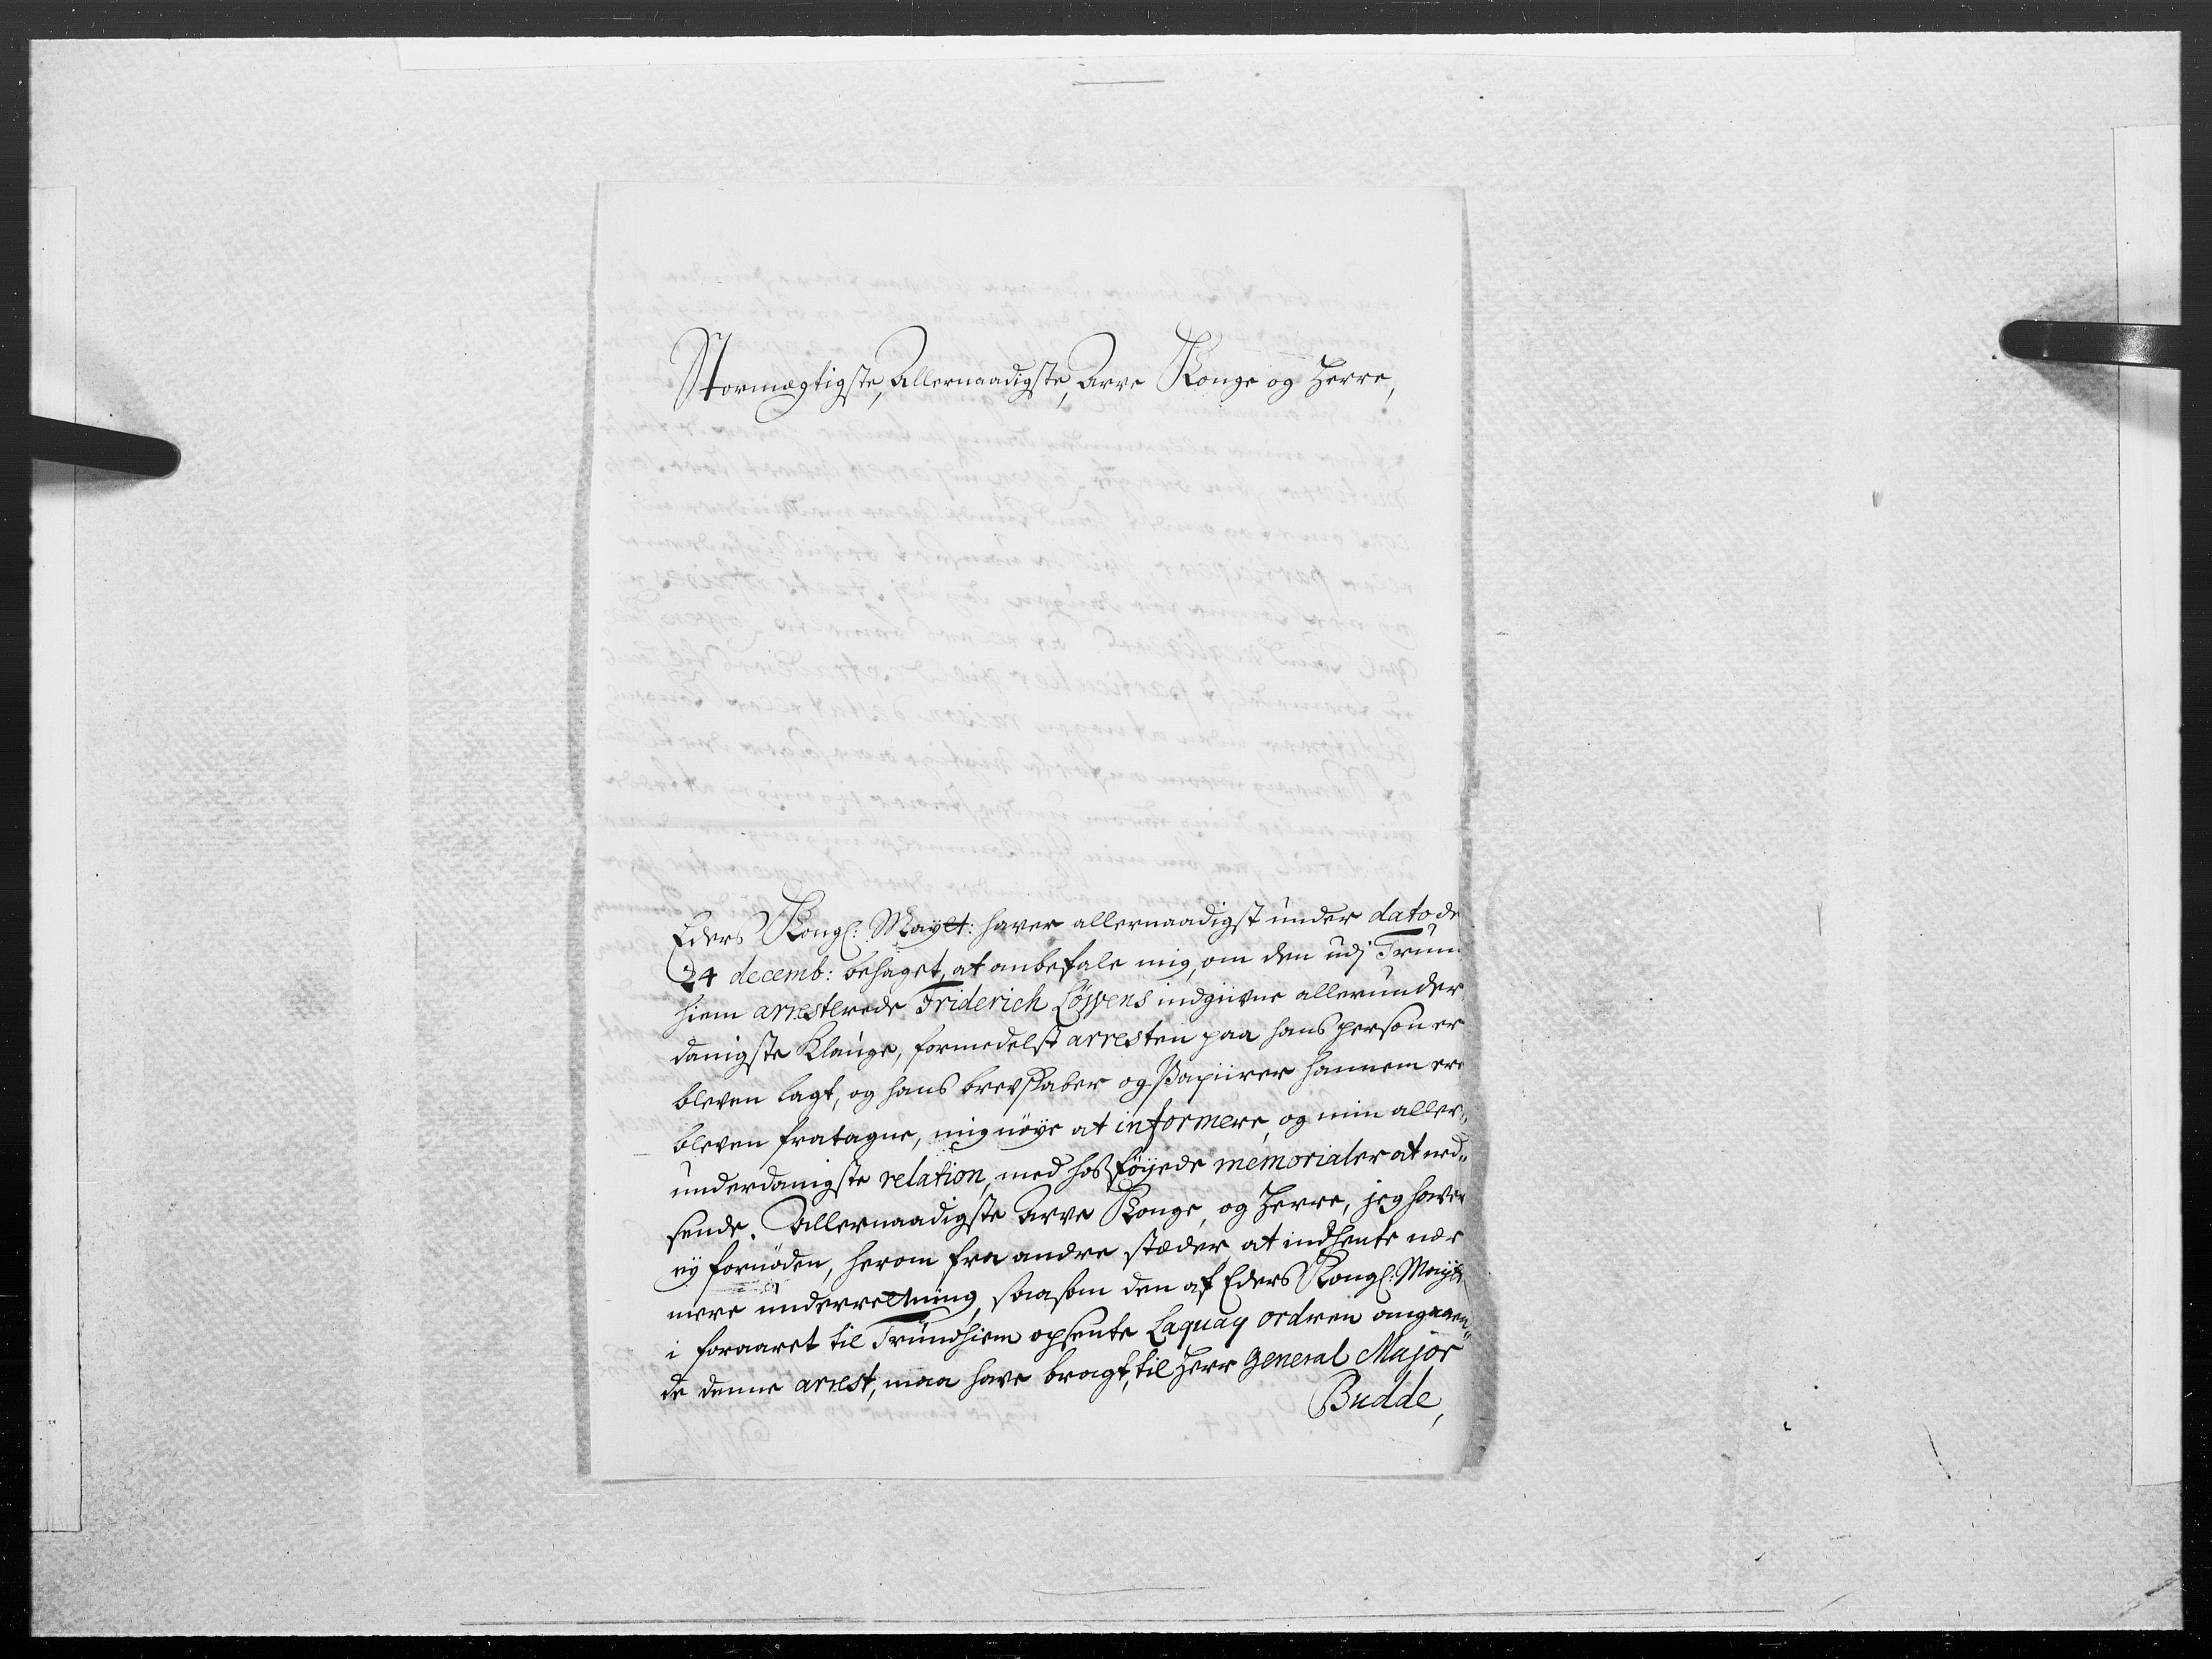 Stormægtigste, Allernaadigste, Arve Konge og Herre,
Eders Kongl: Mayst: haver allernaadigst under dato de
24 decemb: behaget, at anbefale mig, om den udj Trun
hiem arresterede Friderich Løssens indgivne allerunder
danigste Klauge, formedelst arresten paa hans person er
bleven lagt, og hans brevskaber og Papiirer hannem ere
bleven fratagne, mig nøye at informere, og min aller„
underdanigste relation, med hosføyede memorialer at ned„
sende. Allernaadigste Arve Konge, og Herre, jeg haver
ey fornøden, herom fra andre stæder, at indhente nær
mere underrettning, saasom den af Eders Kongl: Mayts
i foraaret til Trundhiem opsente Laquay ordren angaaen„
de denne arrest, maa have bragt, til Herr General Major
Budde,